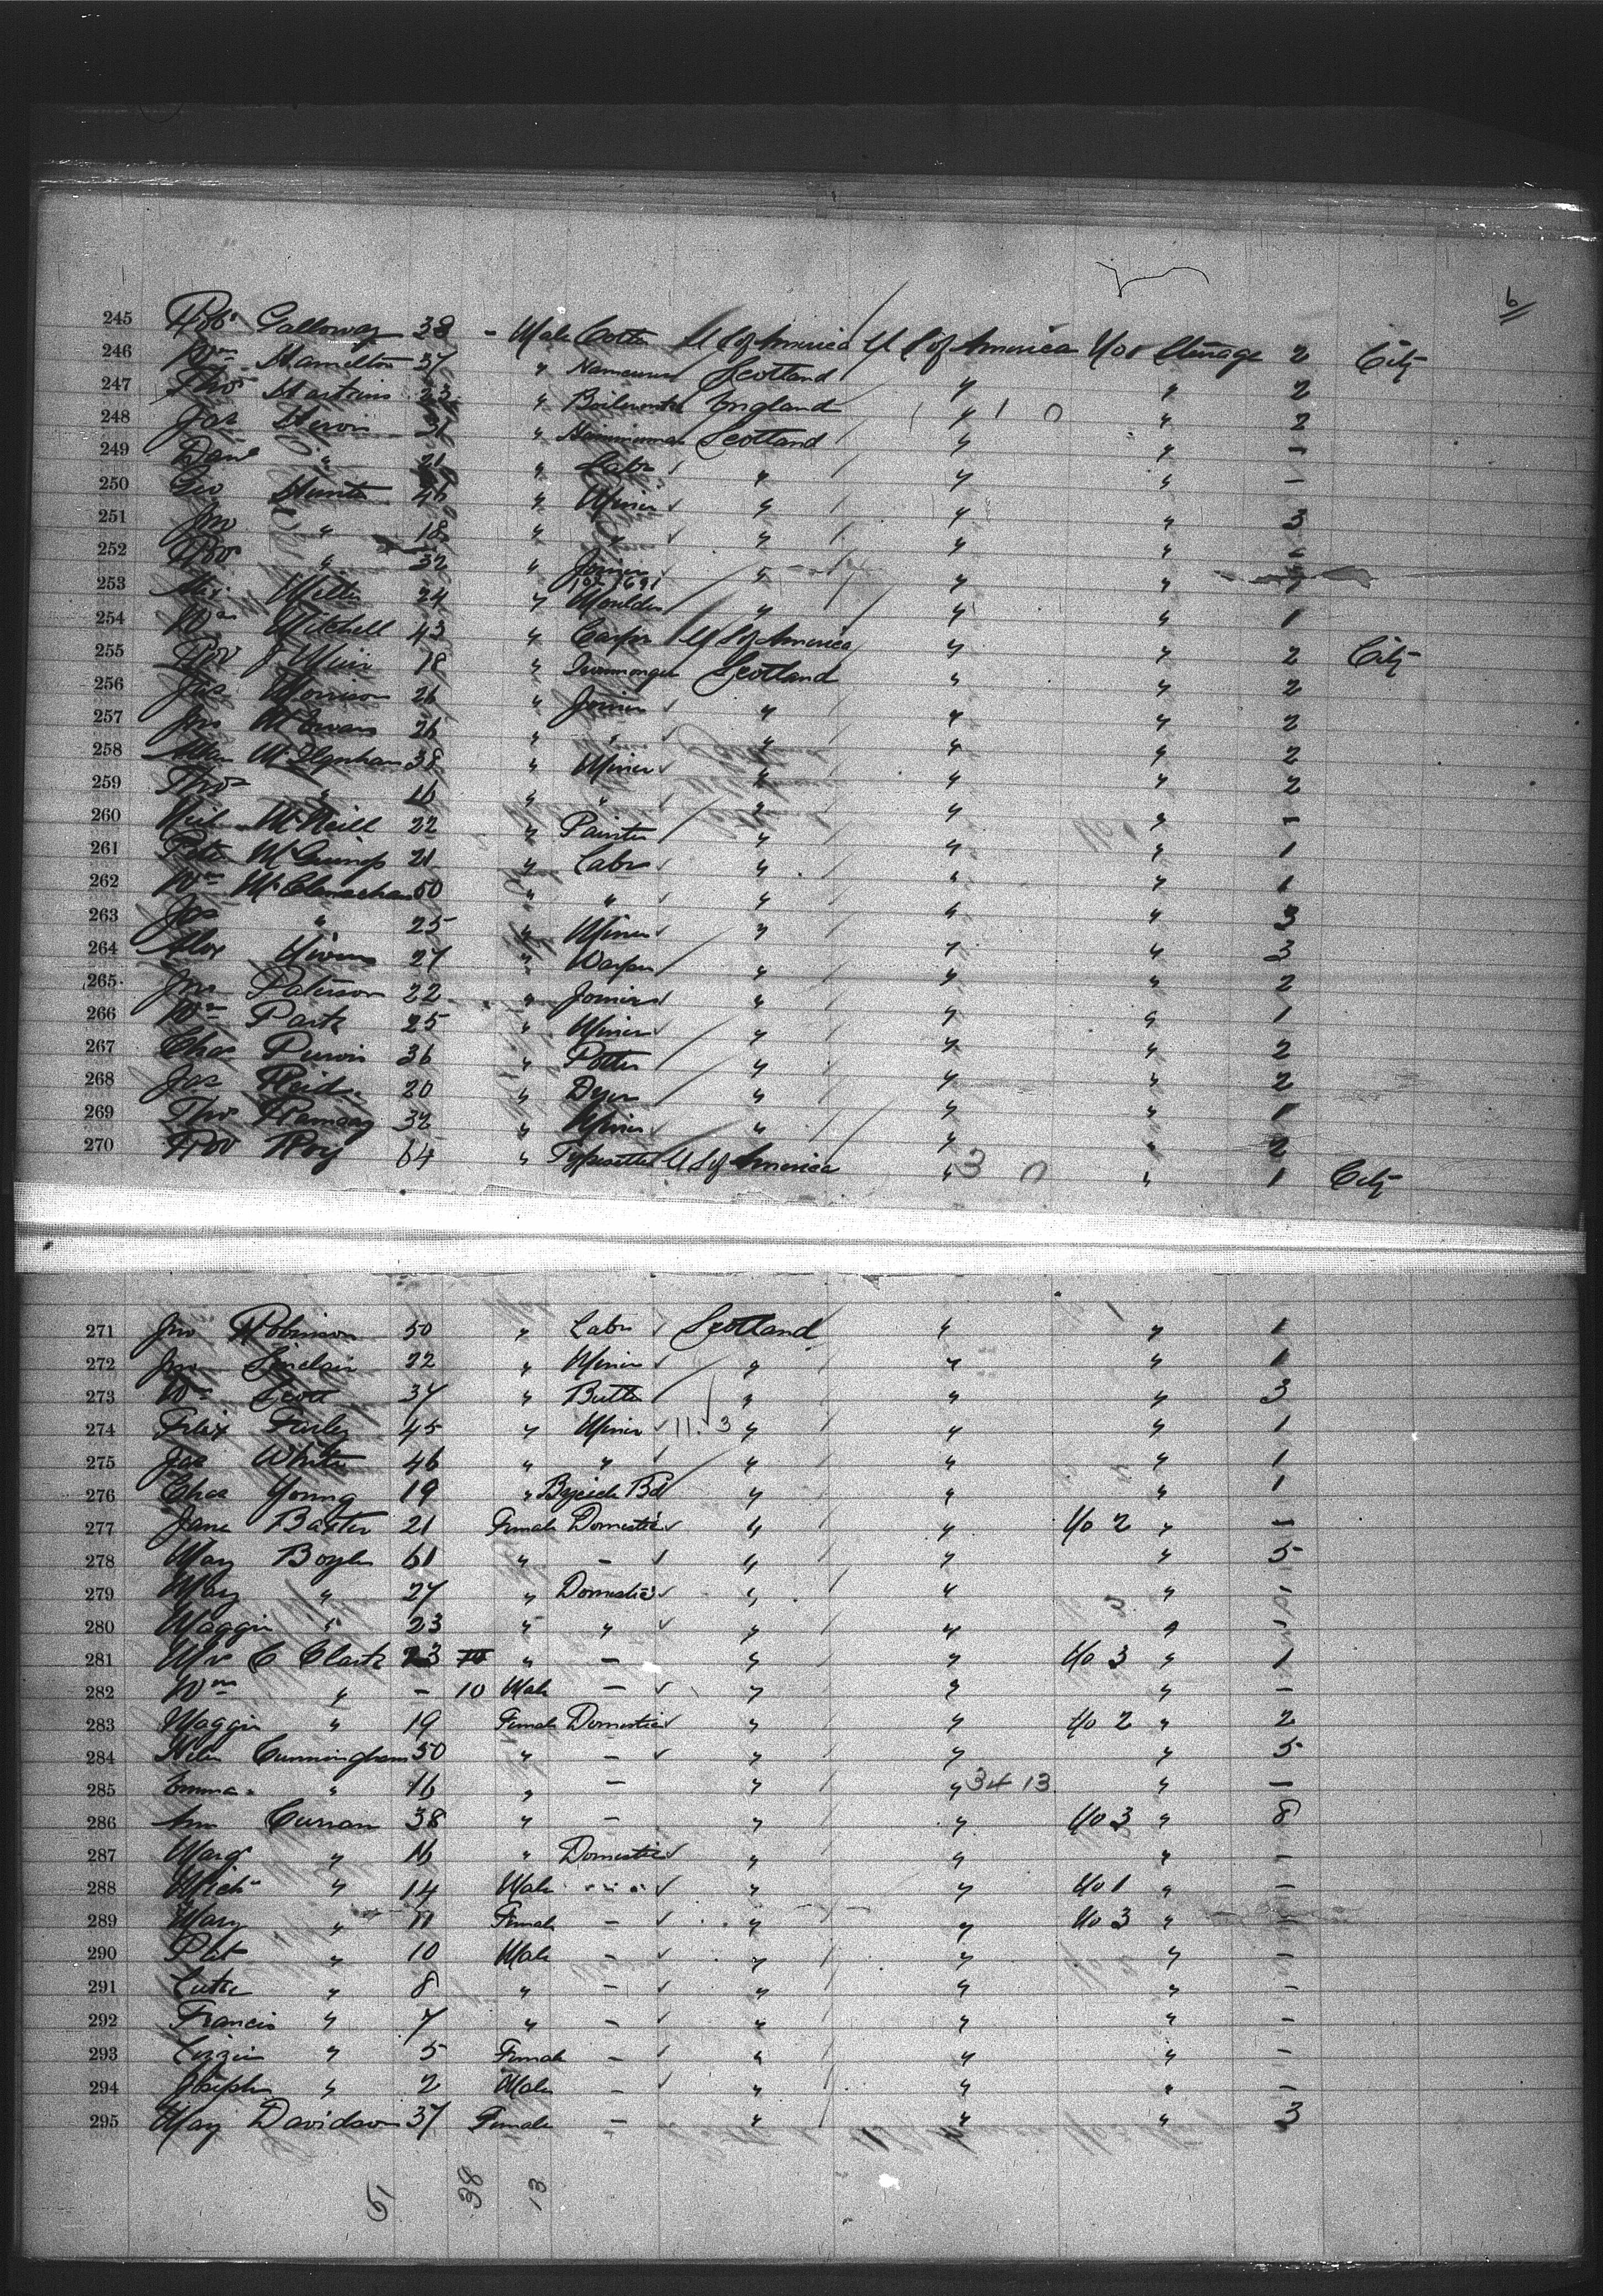 6
245 Robt Galloway 38 - Male U S of America U S of America No 1 Steerage 2 City
246 Wm Hamilton 37 " Scotland " " 2
247 Thos 23 " England " 1 0 " 2
248 Jas 31 " Hammerman Scotland " " -
249 Danl " 21 " Labr " " " -
250 Geo Hunter 46 " Miner " " " 3
251 Jno " 18 " " " " " -
252 Robt " 32 " Joiner " " "
253 Alex Miller 24 " Moulder " " " 1
254 Wm Mitchell 43 " Carpr U S of America " " 2 City
255 Rob J Muir 18 " Ironmonger Scotland " " 2
256 Jas Morrison 26 " Joiner " " " 2
257 Jno McEwan 26 " " " " " 2
258 38 " Miner " " " 2
259 Thos " 16 " " " " " -
260 Neil McNeill 22 " Painter " " " 1
261 Peter 21 " Labr " " " 1
262 Wm McClanachan 50 " " " " " 3
263 Jas " 25 " Miner " " " 3
264 Alex Niven 27 " " " " 2
265 Jno Paterson 22 " Joiner " " " 1
266 Wm Park 25 " Miner " " " 2
267 Chas Purvis 36 " Potter " " " 2
268 Jas Reid 20 " Dyer " " " 1
269 Thos Ramsay 32 " Miner " " " 2
270 Rob Roy 64 " Typesetter U S of America " 3 0 " 1 City
271 Jno Robinson 50 " Labr Scotland " " 1
272 Jno Sinclair 22 " Miner " " " 1
273 Wm Scott 37 " Butler " " " 3
274 Felix Farley 45 " Miner 11.3 " " " 1
275 Jas White 46 " " " " " 1
276 Chas Young 19 " " " " 1
277 Jane Baxter 21 Female Domestic " " No 2 " -
278 Mary Boyle 61 " - " " " 5
279 Mary " 27 " Domestic " " " -
280 Maggie " 23 " " " " " -
281 Mrs C Clark 23 " - " " No 3 " 1
282 Wm " - 10 Male - " " " -
283 Maggie " 19 Female Domestic " " No 2 " 2
284 Helen Cunningham 50 " - " " " 5
285 Emma " 16 " - " " 34 13 " -
286 Ann Curran 38 " - " " No 3 " 8
287 Margt " 16 " Domestic " " " -
288 Michl " 14 Male " " No 1 " -
289 Mary " 11 Female - " " No 3 " -
290 Pat " 10 Male - " " " -
291 Luke " 8 " - " " " -
292 Francis " 7 " - " " " -
293 Lizzie " 5 Female - " " " -
294 Joseph " 2 Male - " " " -
295 Mary Davidson 37 Female - " " " 3
51 38 13